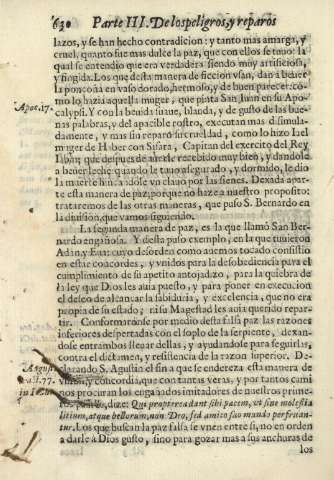 630 Parte III. De los peligros, y reparos
lazos, y se han hecho contradicion: y tanto mas amarga, y
cruel, quanto fue mas dulce la paz, que con ellos se tuuo: la
qual se entendio que era verdadera siendo muy artificiosa,
y fingida. Los que desta manera de ficcion vsan, dan a beuer
la ponçoña en vaso dorado, hermoso, y de buen parecer: có-
Apoc. 17. mo lo hazia aquella muger, que pinta San Iuan en su Apo-
calypsi. Y con la beuida suaue, blanda, y de gusto de las bue-
nas palabras, y del apacible rostro, executan mas dissimula-
damente, y mas sin reparo su crueldad, como lo hizo Iael
muger de Haber con Sisara, Capitan del exercito del Rey
Iabin; que despues de auerle recebido muy bien, y dandole
a beuer leche quando le tuuo assegurado, y dormido, le dio
la muerte hincandole vn clauo por las sienes. Dexada apar-
te esta manera de paz, porque no haze a nuestro proposito:
trataremos de las otras maneras, que puso S. Bernardo en
la diuision, que vamos siguiendo.
La segunda manera de paz, es la que llamó San Ber-
nardo engañosa. Y desta puso exemplo, en la que tuuieron
Adan, y Eua: cuyo desorden como auemos tocado consistio
en estar concordes, y vnidos para la desobediencia para el
cumplimiento de su apetito antojadizo, para la quiebra de
la ley que Dios les auia puesto, y para poner en execucion
el deseo de alcançar la sabiduria, y excelencia, que no era
propia de su estado; ni su Magestad les auia querido repar-
tir. Conformaronse por medio desta falsa paz las razones
inferiores despertadas con el soplo de la serpiente, dexan-
dole entrambos lleuar dellas, y ayudandole para seguirlas,
contra el dictamen, y resistencia de la razon superior. De-
August. clarando S. Agustin el fin a que se endereza esta manera de
77. vnion, y concordia, que con tantas veras, y por tantos cami
in nos procuran los engañados imitadores de nuestros prime-
ros padres, dize: Qui propterea dant sibi pacem, vt sine molestia
litium, atque bellorum, non Deo, sed amico suo mundo perfruan-
tur. Los que buscan la paz falsa se vnen entre si, no en orden
a darle a Dios gusto, sino para gozar mas a sus anchuras de
los